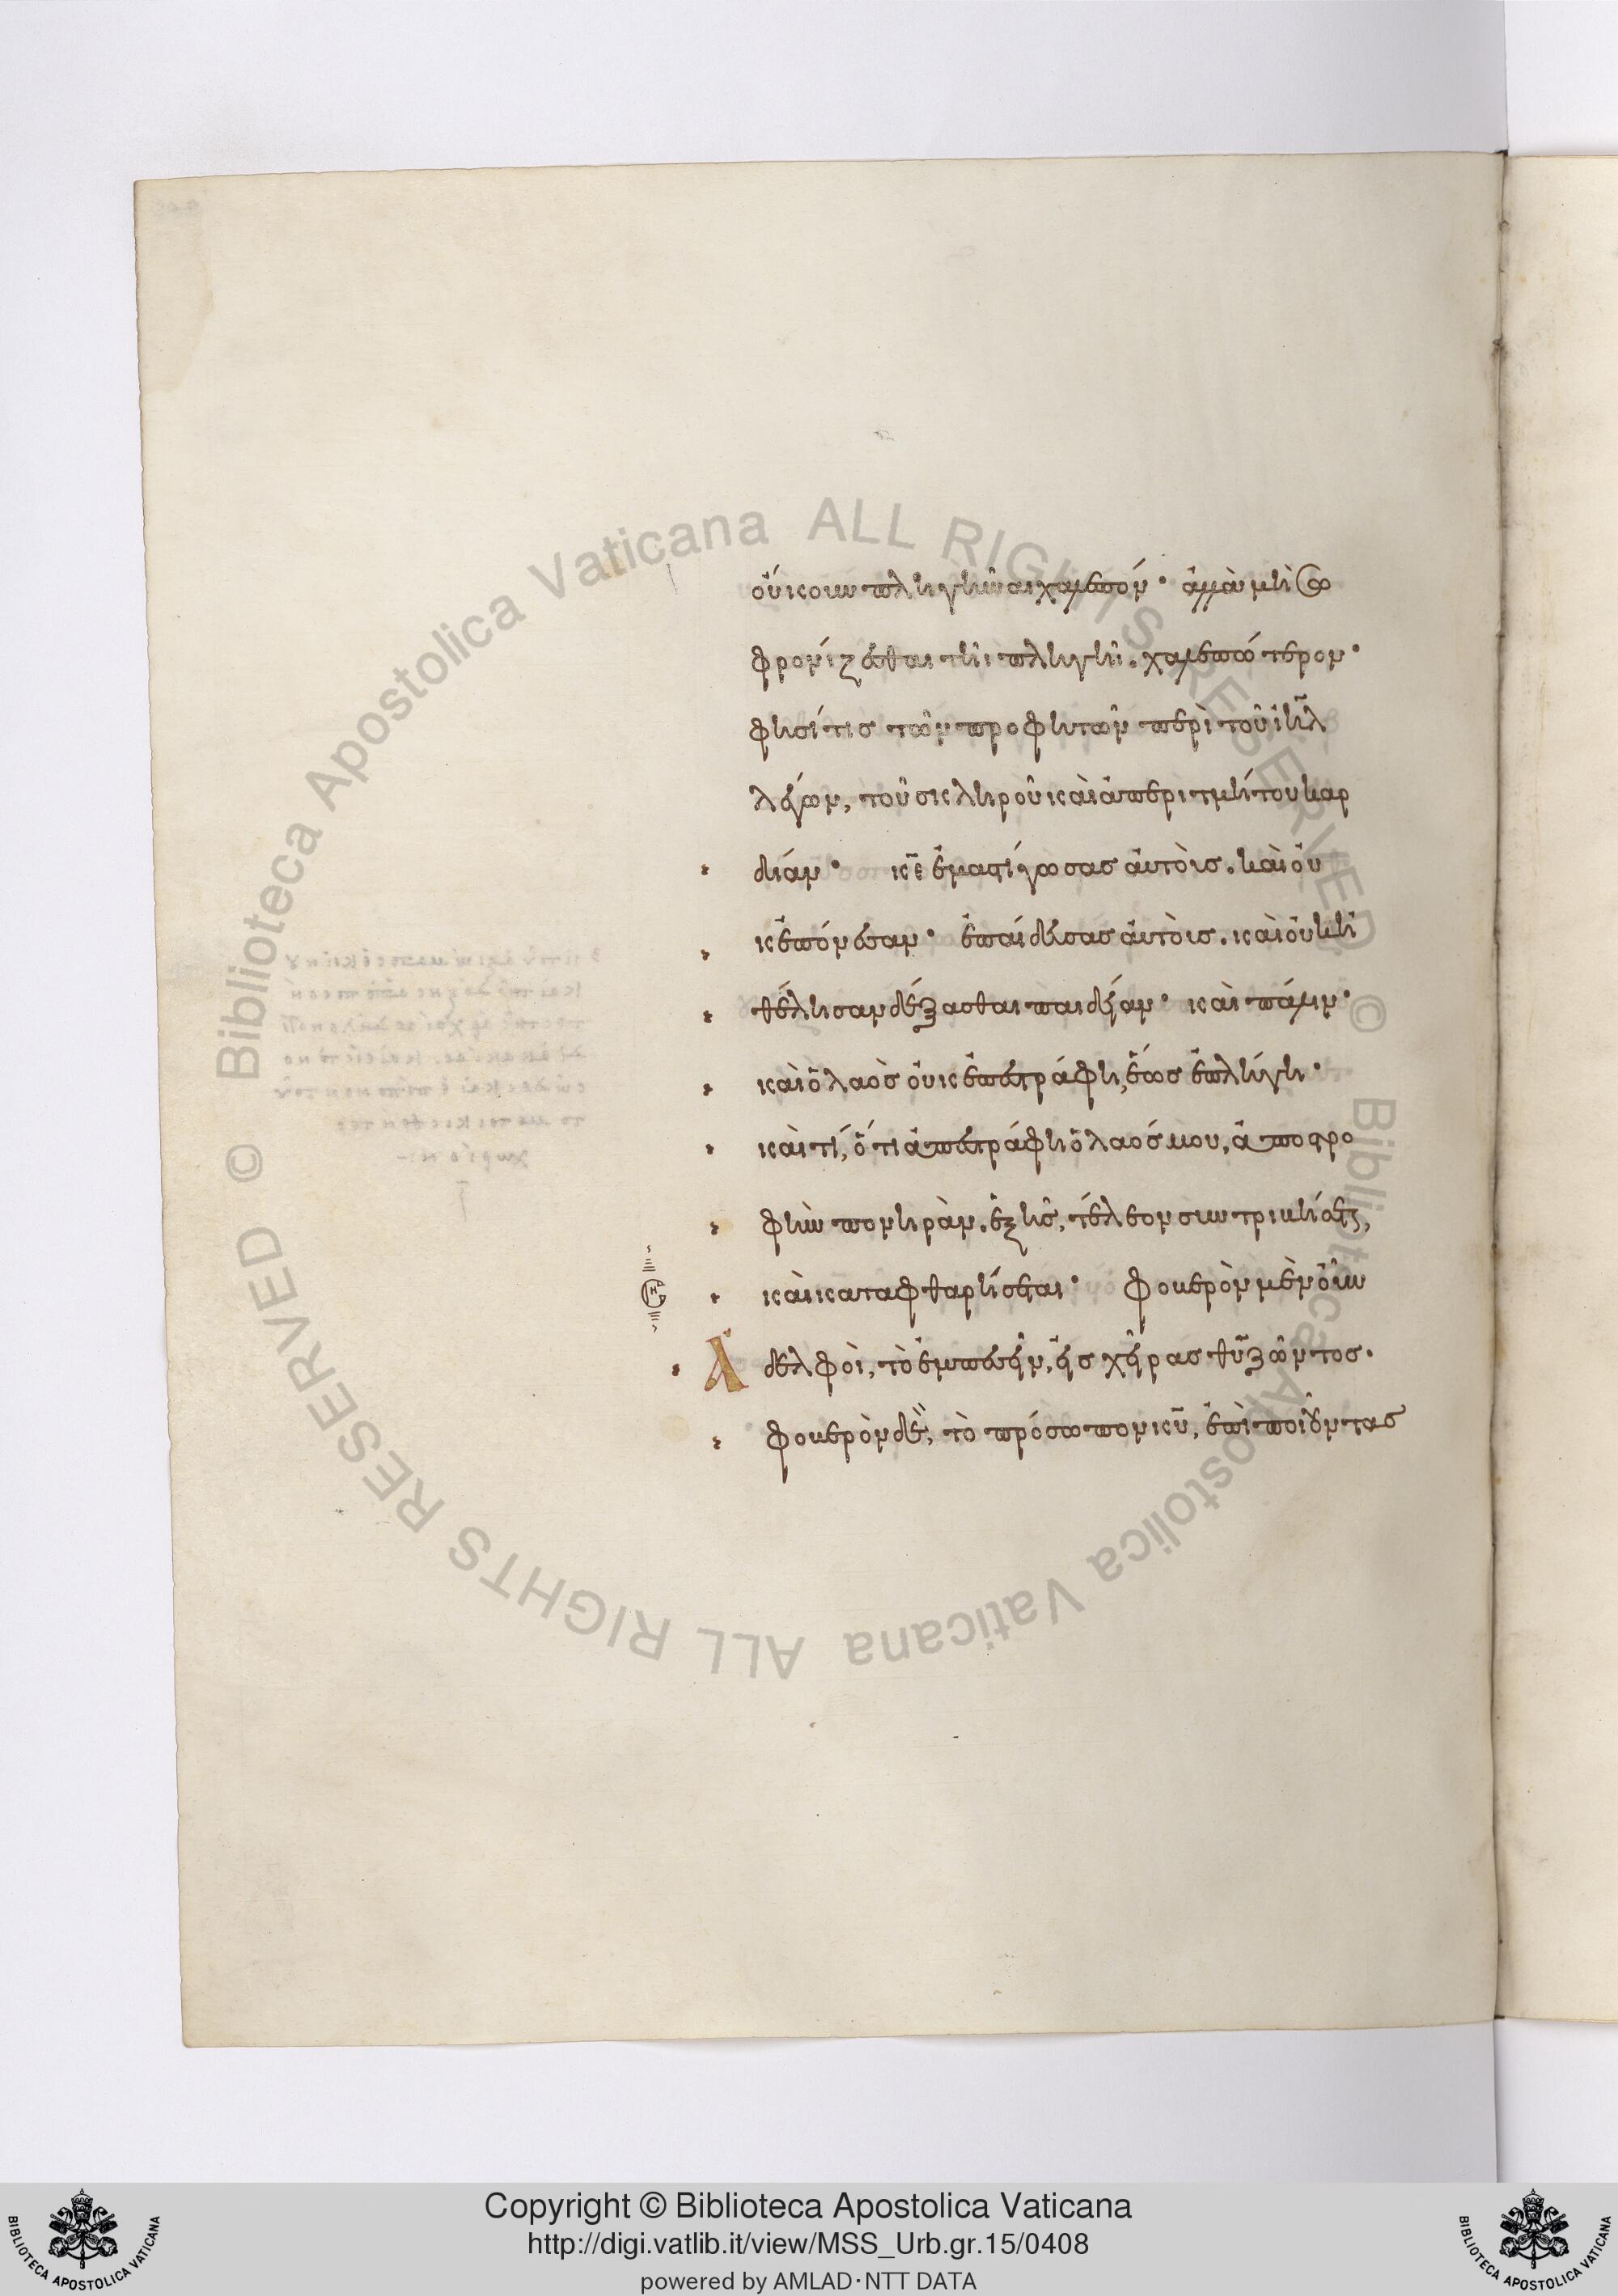 οὔκουν πληγὴν αι χαλεπόν· ἀλλὰ μὴ σω
φρονίζεσθαι τῆι πληγῆι. χαλεπώτερον·
φησί τις τῶν προφητῶν περὶ τοῦ ιηλ
λέγων, τοῦ σκληροῦ καὶ ἀπεριτμήτου καρ
δίαν· κε ἐμαστίγωσας αὐτοὺς. καὶ οὐ
κ ἐπόνεσαν· ἐπαίδευσας αὐτοὺς. καὶ οὐκ ἠ
θέλησαν δέξασθαι παιδείαν· καὶ πάλιν·
καὶ ὁ λαὸς οὐκ ἐπεστράφη, ἕως ἐπλήγη·
καὶ τί, ὅτι ἀπεστράφη ὁ λαός μου, ἀποστρο
φὴν πονηράν. ἐξ ῆς, τέλεον συντριβήσεται,
καὶ καταφθαρήσεται· φοβερὸν μὲν οὖν
Ἀδελφοὶ, τὸ ἐμπεσεῖν, εἰς χεῖρας θυ ζῶντος.
φοβερὸν δὲ, τὸ πρόσωπον κυ, ἐπὶ ποιοῦντας
Biblioteca Apostolica Vaticana ALL RIGHTS RESERVED ©
Biblioteca Apostolica Vaticana ALL RIGHTS RESERVED ©
Copyright © Biblioteca Apostolica Vaticana
http://digi.vatlib.it/view/MSS_Urb.gr.15/0408
powered by AMLAD·NTT DATA
BIBLIOTECA APOSTOLICA VATICANA
BIBLIOTECA APOSTOLICA VATICANA